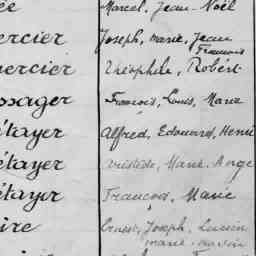 ée Marcel, Jean-Noël
ercier Joseph, Marie, Jean
François
ercier Théophile, Robert
ssager François, Louis, Marie
étayer Alfred, Edouard, Henri
étayer Aristide, Marie-Ange
étayer François, Marie
ire Ernest, Joseph, Lucien
Marie